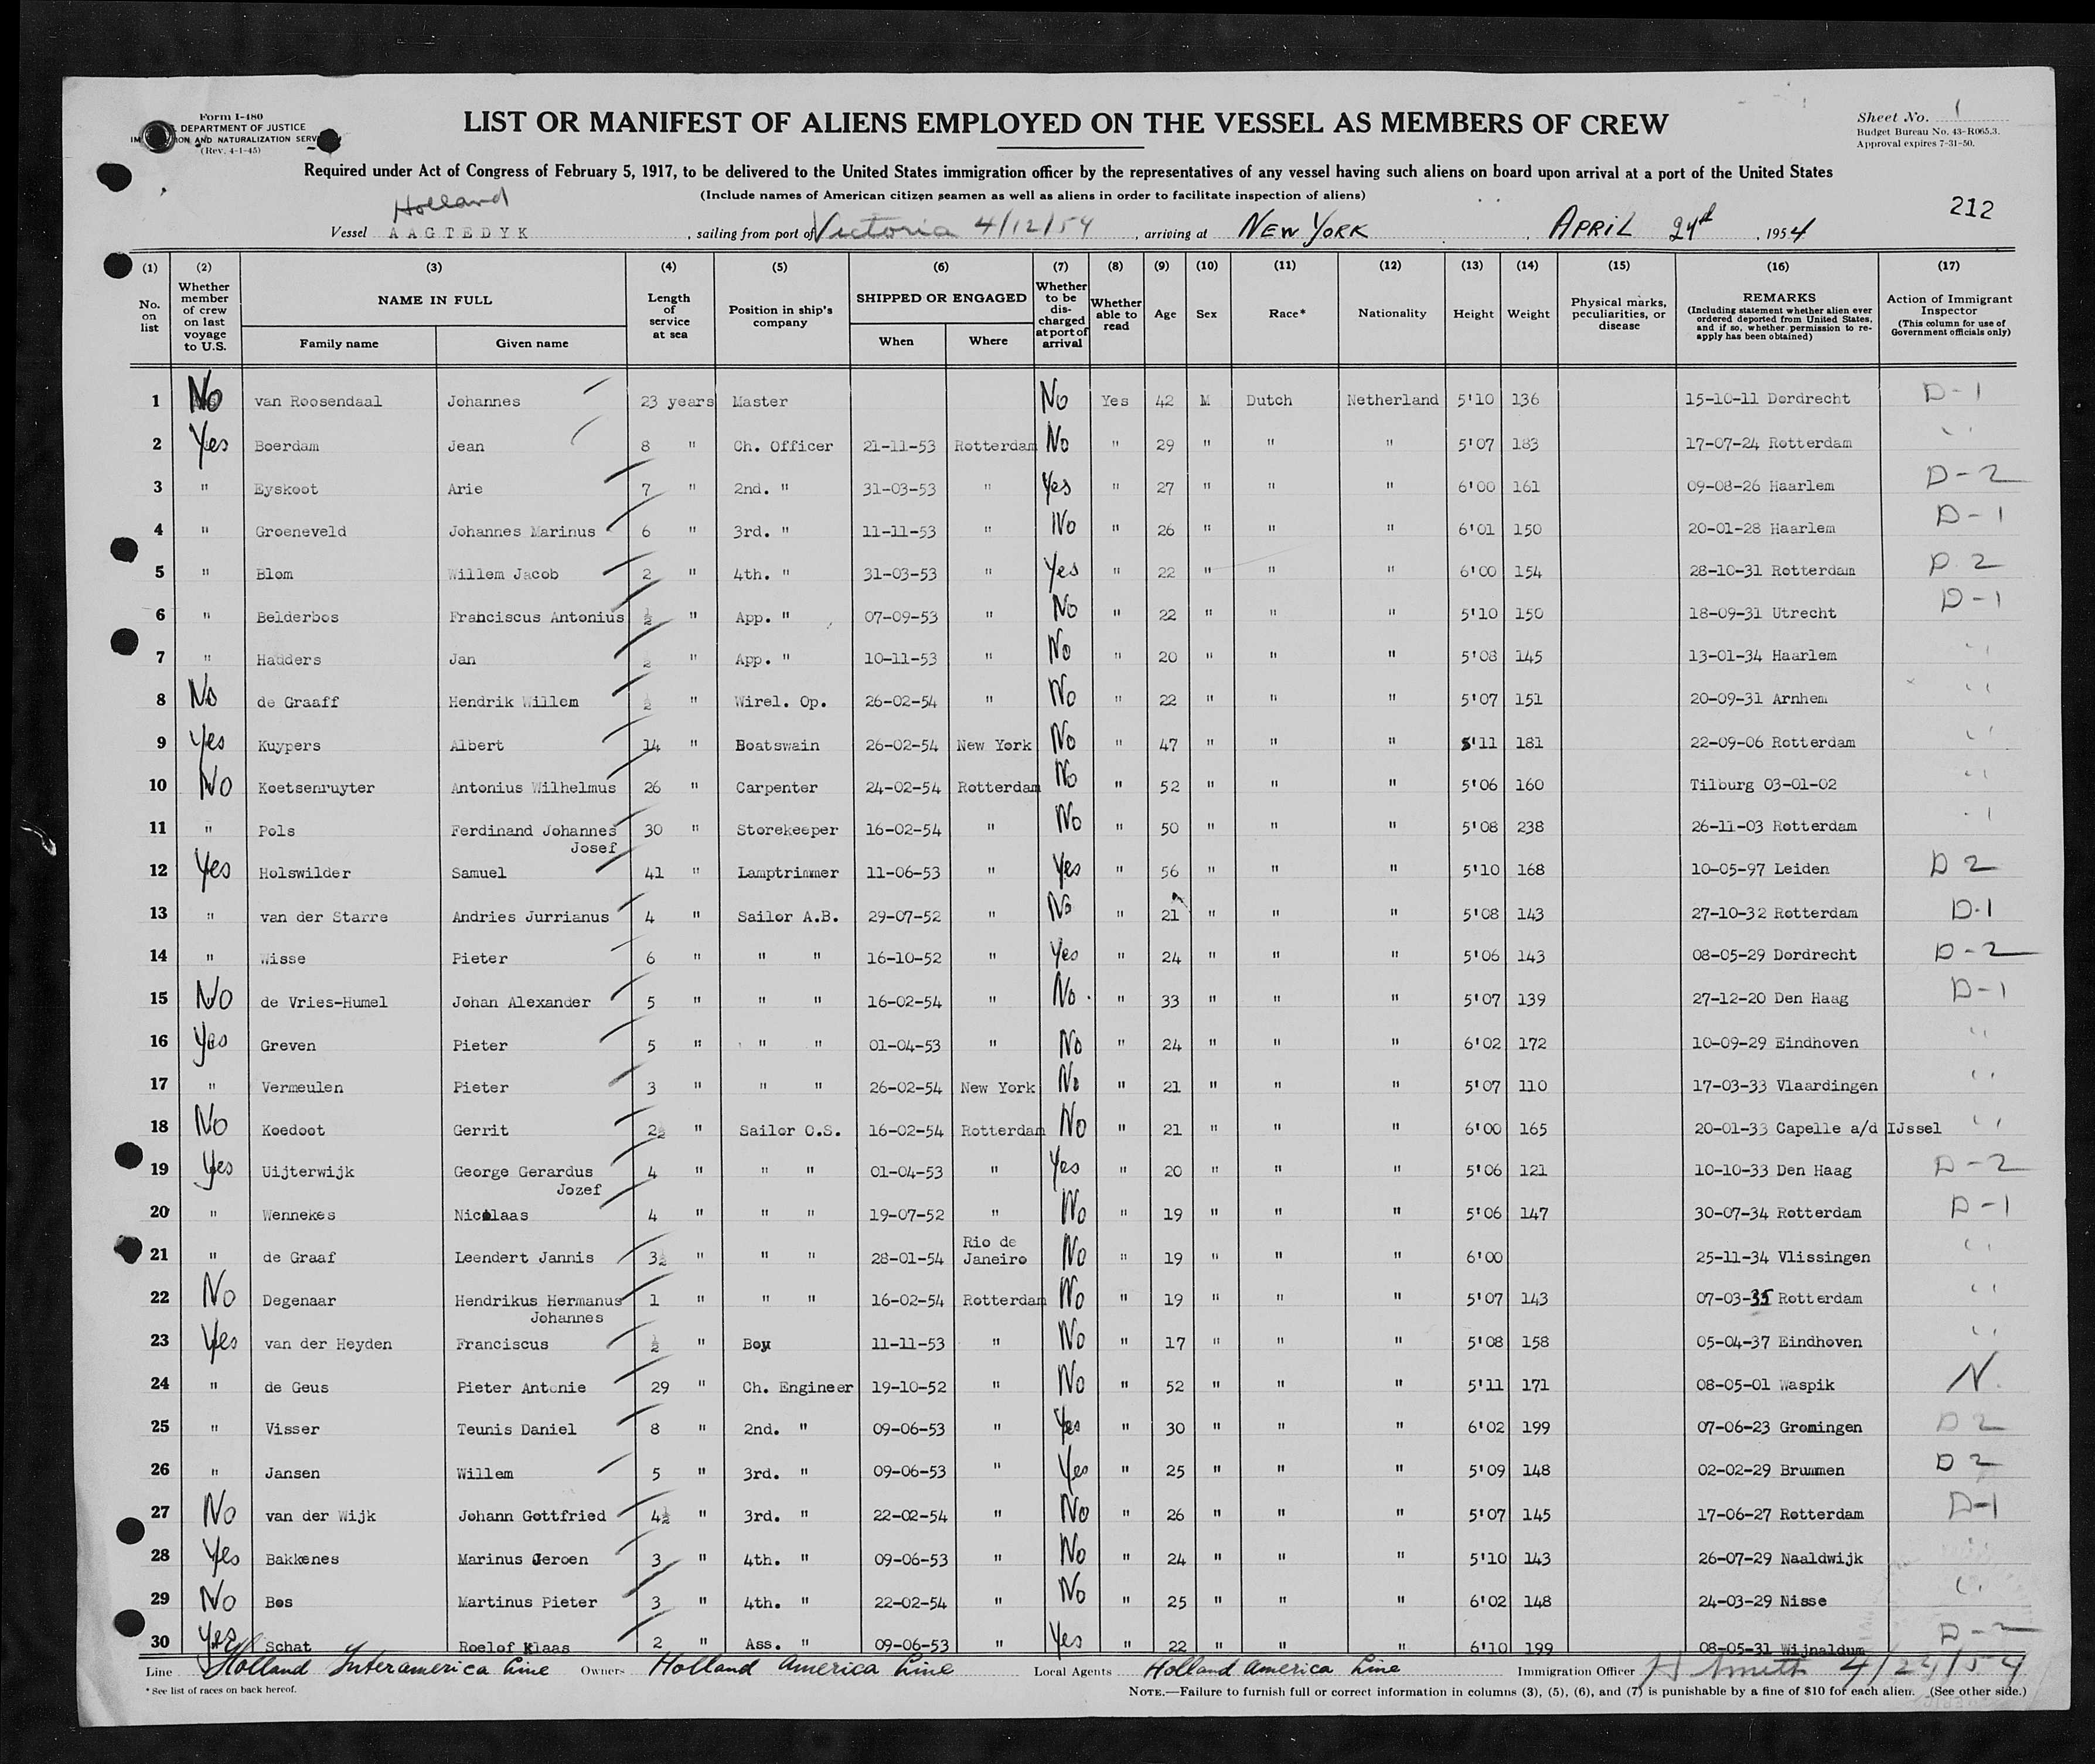 Form I-480
DEPARTMENT OF JUSTICE
ION AND NATURALIZATION SERV
(Rev. 4-1-45)
LIST OR MANIFEST OF ALIENS EMPLOYED ON THE VESSEL AS MEMBERS OF CREW
Sheet No. 1
Budget Bureau No. 43-R065.3.
Approval expires 7-31-50.
Required under Act of Congress of February 5, 1917, to be delivered to the United States immigration officer by the representatives of any vessel having such aliens on board upon arrival at a port of the United States
(Include names of American citizen seamen as well as aliens in order to facilitate inspection of aliens)
212
Holland
Vessel AAGTEDYK, sailing from port of Victoria 4/12/54, arriving at NEW YORK, APRIL 24th, 1954
(1) (2) (3) (4) (5) (6) (7) (8) (9) (10) (11) (12) (13) (14) (15) (16) (17)
No. on list | Whether member of crew on last voyage to U.S. | NAME IN FULL | Family name | Given name | Length of service at sea | Position in ship's company | SHIPPED OR ENGAGED | When | Where | Whether to be discharged at port of arrival | Whether able to read | Age | Sex | Race* | Nationality | Height | Weight | Physical marks, peculiarities, or disease | REMARKS (Including statement whether alien ever ordered deported from United States, and if so, whether permission to reapply has been obtained) | Action of Immigrant Inspector (This column for use of Government officials only)
1 No van Roosendaal Johannes 23 years Master No Yes 42 M Dutch Netherland 5'10 136 15-10-11 Dordrecht D-1
2 Yes Boerdam Jean 8 " Ch. Officer 21-11-53 Rotterdam No " 29 " " " 5'07 183 17-07-24 Rotterdam "
3 " Eyskoot Arie 7 " 2nd. " 31-03-53 " Yes " 27 " " " 6'00 161 09-08-26 Haarlem D-2
4 " Groeneveld Johannes Marinus 6 " 3rd. " 11-11-53 " No " 26 " " " 6'01 150 20-01-28 Haarlem D-1
5 " Blom Willem Jacob 2 " 4th. " 31-03-53 " Yes " 22 " " " 6'00 154 28-10-31 Rotterdam D 2
6 " Belderbos Franciscus Antonius ½ " App. " 07-09-53 " No " 22 " " " 5'10 150 18-09-31 Utrecht D-1
7 " Hadders Jan ½ " App. " 10-11-53 " No " 20 " " " 5'08 145 13-01-34 Haarlem "
8 No de Graaff Hendrik Willem ½ " Wirel. Op. 26-02-54 " No " 22 " " " 5'07 151 20-09-31 Arnhem "
9 Yes Kuypers Albert 14 " Boatswain 26-02-54 New York No " 47 " " " 5'11 181 22-09-06 Rotterdam "
10 No Koetsenruyter Antonius Wilhelmus 26 " Carpenter 24-02-54 Rotterdam No " 52 " " " 5'06 160 Tilburg 03-01-02 "
11 " Pols Ferdinand Johannes 30 " Storekeeper 16-02-54 " No " 50 " " " 5'08 238 26-11-03 Rotterdam "
Josef
12 Yes Holswilder Samuel 41 " Lamptrimmer 11-06-53 " Yes " 56 " " " 5'10 168 10-05-97 Leiden D 2
13 " van der Starre Andries Jurrianus 4 " Sailor A.B. 29-07-52 " No " 21 " " " 5'08 143 27-10-32 Rotterdam D-1
14 " Wisse Pieter 6 " " " 16-10-52 " Yes " 24 " " " 5'06 143 08-05-29 Dordrecht D-2
15 No de Vries-Humel Johan Alexander 5 " " " 16-02-54 " No " 33 " " " 5'07 139 27-12-20 Den Haag D-1
16 Yes Greven Pieter 5 " " " 01-04-53 " No " 24 " " " 6'02 172 10-09-29 Eindhoven "
17 " Vermeulen Pieter 3 " " " 26-02-54 New York No " 21 " " " 5'07 110 17-03-33 Vlaardingen "
18 No Koedoot Gerrit 2½ " Sailor O.S. 16-02-54 Rotterdam No " 21 " " " 6'00 165 20-01-33 Capelle a/d IJssel "
19 Yes Uijterwijk George Gerardus 4 " " " 01-04-53 " Yes " 20 " " " 5'06 121 10-10-33 Den Haag D-2
Jozef
20 " Wennekes Nicolaas 4 " " " 19-07-52 " No " 19 " " " 5'06 147 30-07-34 Rotterdam D-1
21 " de Graaf Leendert Jannis 3½ " " " 28-01-54 Rio de Janeiro No " 19 " " " 6'00 25-11-34 Vlissingen "
22 No Degenaar Hendrikus Hermanus 1 " " " 16-02-54 Rotterdam No " 19 " " " 5'07 143 07-03-35 Rotterdam "
Johannes
23 Yes van der Heyden Franciscus ½ " Boy 11-11-53 " No " 17 " " " 5'08 158 05-04-37 Eindhoven "
24 " de Geus Pieter Antonie 29 " Ch. Engineer 19-10-52 " No " 52 " " " 5'11 171 08-05-01 Waspik N
25 " Visser Teunis Daniel 8 " 2nd. " 09-06-53 " Yes " 30 " " " 6'02 199 07-06-23 Gromingen D 2
26 " Jansen Willem 5 " 3rd. " 09-06-53 " Yes " 25 " " " 5'09 148 02-02-29 Brummen D 2
27 No van der Wijk Johann Gottfried 4½ " 3rd. " 22-02-54 " No " 26 " " " 5'07 145 17-06-27 Rotterdam D-1
28 Yes Bakkenes Marinus Jeroen 3 " 4th. " 09-06-53 " No " 24 " " " 5'10 143 26-07-29 Naaldwijk "
29 No Bos Martinus Pieter 3 " 4th. " 22-02-54 " No " 25 " " " 6'02 148 24-03-29 Nisse "
30 Yes Schat Roelof Klaas 2 " Ass. " 09-06-53 " Yes " 22 " " " 6'10 199 08-05-31 Wijnaldum D-2
Line Holland Interamerica Line Owners Holland America Line Local Agents Holland America Line Immigration Officer H Smith 4/24/54
* See list of races on back hereof.
NOTE.—Failure to furnish full or correct information in columns (3), (5), (6), and (7) is punishable by a fine of $10 for each alien. (See other side.)